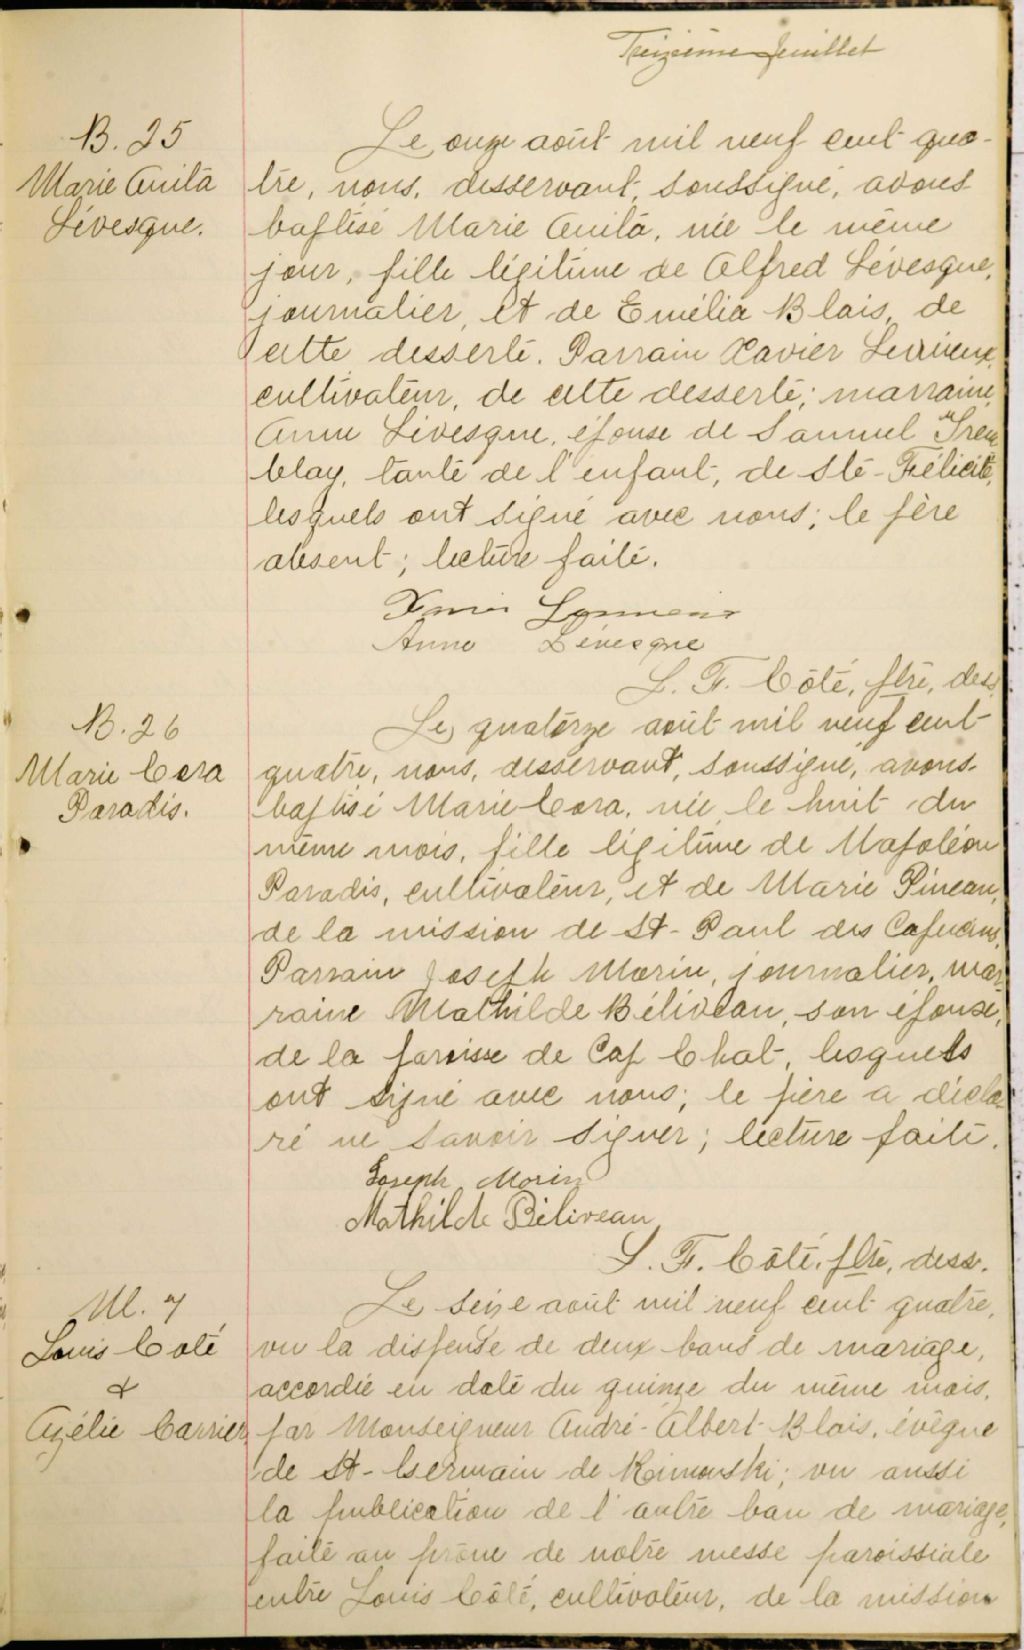 Treizième feuillet
B. 25
Marie Anita
Lévesque.
Le onze août mil neuf cent qua-
tre, nous, desservant, soussigné, avons
baptisé Marie Anita, née le même
jour, fille légitime de Alfred Lévesque,
journalier, et de Emélia Blais, de
cette desserte. Parrain Xavier
cultivateur, de cette desserte; marraine,
Anne Lévesque, épouse de Samuel Trem
blay, tante de l'enfant, de Ste-Félicité,
lesquels ont signé avec nous; le père
absent; lecture faite.
Anne Lévesque
L. F. Côté, ptre, dess.
B. 26
Marie Cora
Paradis.
Le quatorze août mil neuf cent
quatre, nous, desservant, soussigné, avons
baptisé Marie Cora, née le huit du
même mois, fille légitime de Napoléon
Paradis, cultivateur, et de Marie Pineau,
de la mission de St-Paul des Capucins,
Parrain Joseph Morin, journalier, mar
raine Mathilde Béliveau, son épouse,
de la paroisse de Cap Chat, lesquels
ont signé avec nous; le père a décla-
ré ne savoir signer; lecture faite.
Joseph Morin
Mathilde Béliveau
L. F. Côté, ptre, dess.
M. 7
Louis Coté
&
Azélie Carrier
Le seize août mil neuf cent quatre,
vu la dispense de deux bans de mariage,
accordée en date du quinze du même mois,
par Monseigneur André-Albert-Blais, évêque
de St-Germain de Rimouski; vu aussi
la publication de l'autre ban de mariage,
faite au prône de notre messe paroissiale
entre Louis Côté, cultivateur, de la mission